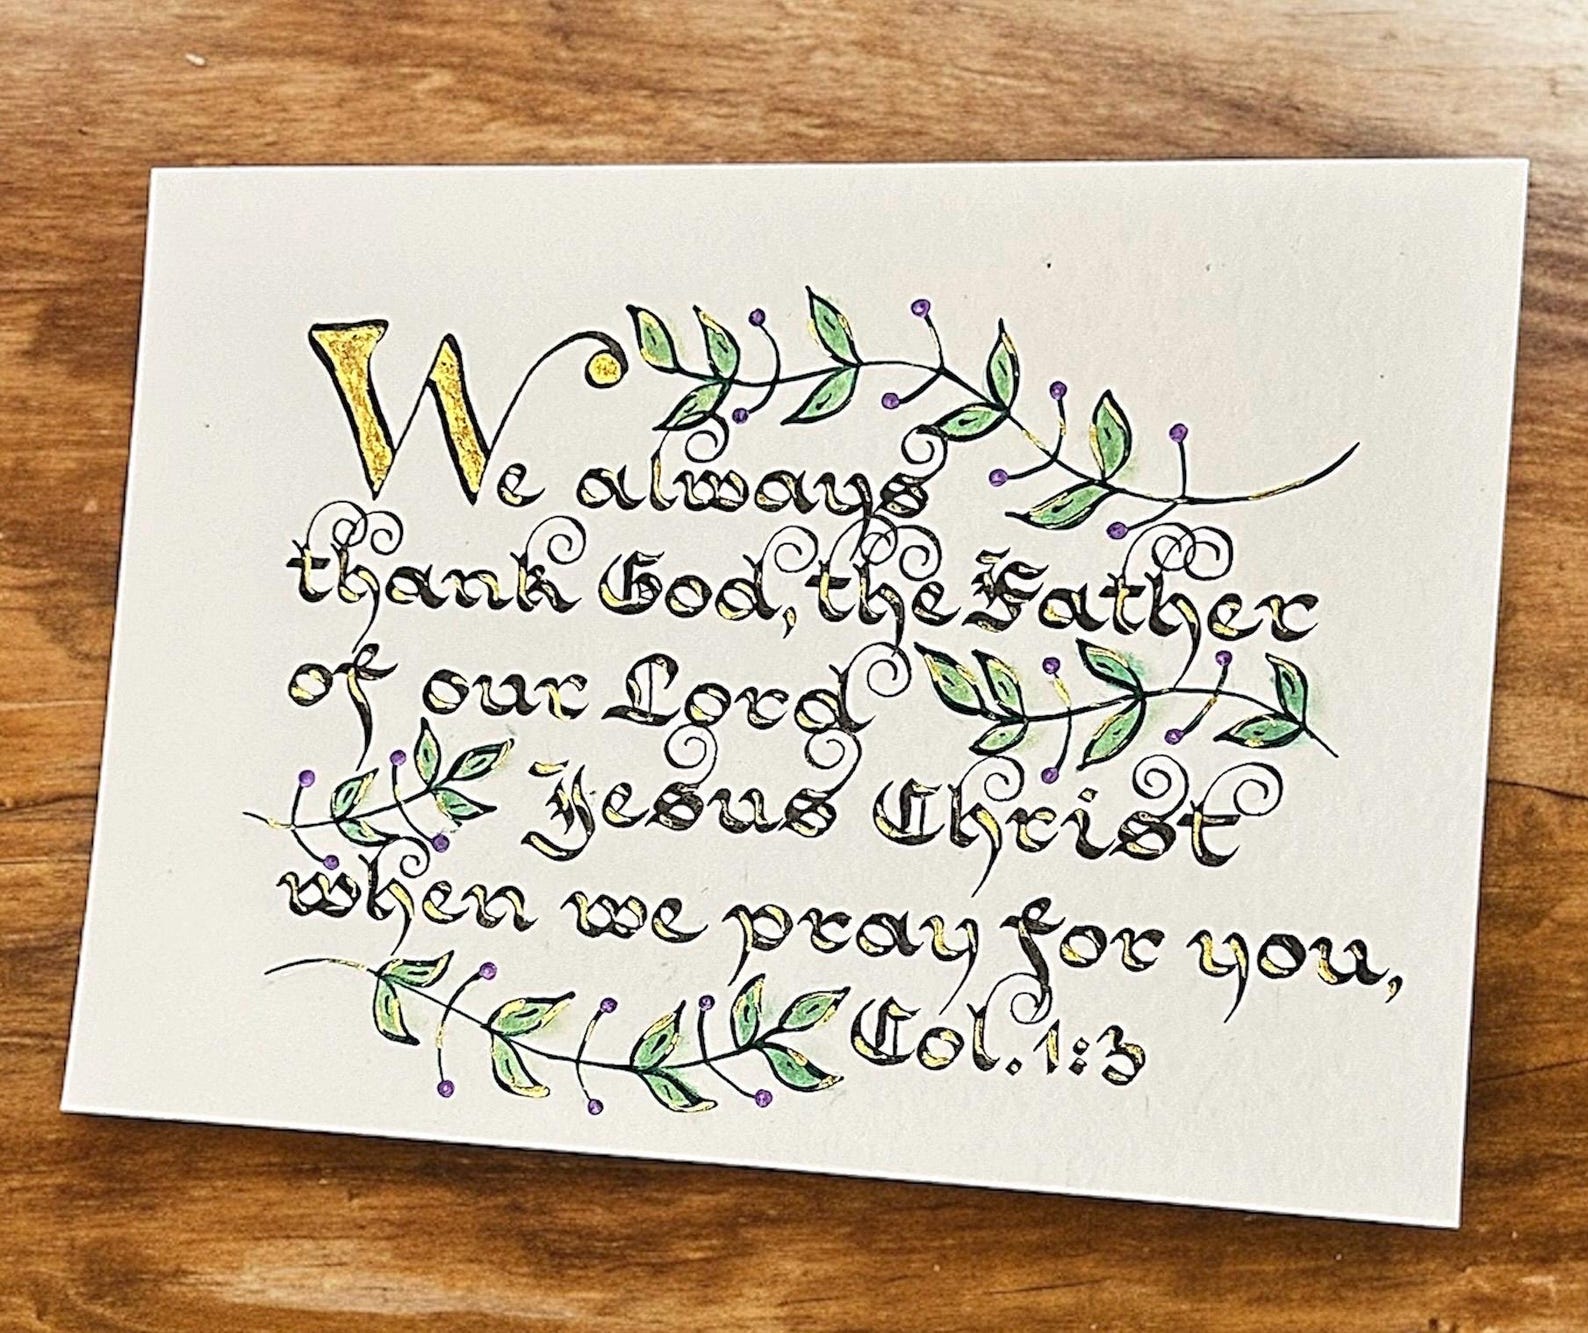 We always
thank God, the Father
of our Lord
Jesus Christ
when we pray for you,
Col. 1:3